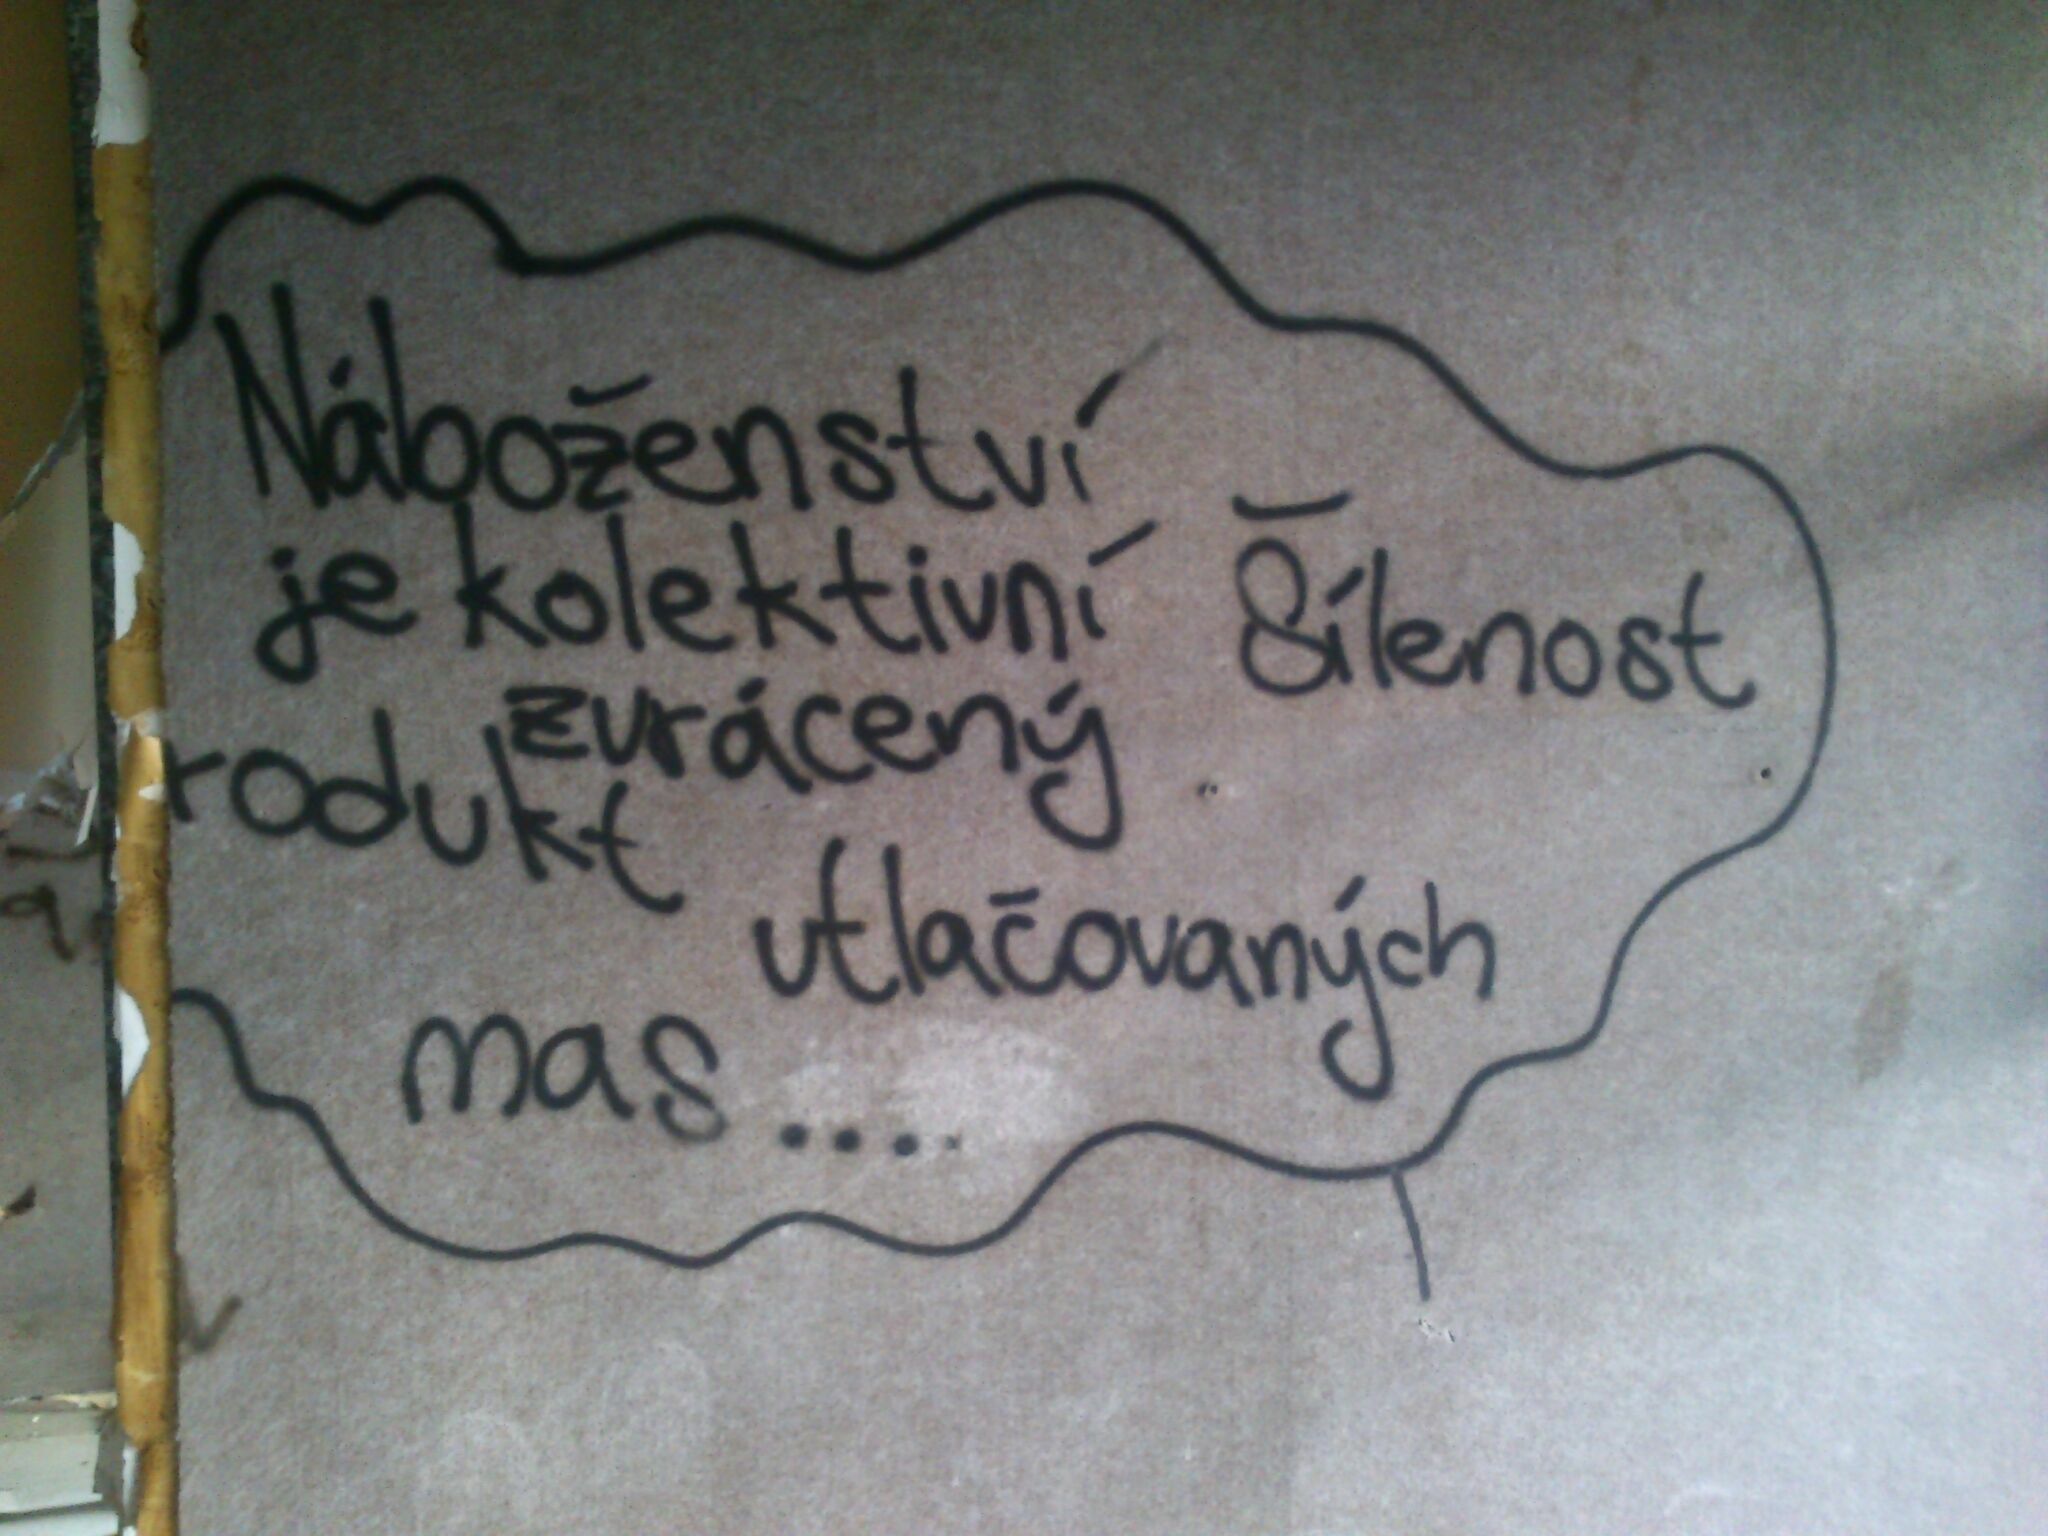 Náboženství
je kolektivní šílenost
zvrácený
rodukt
utlačovaných
mas....